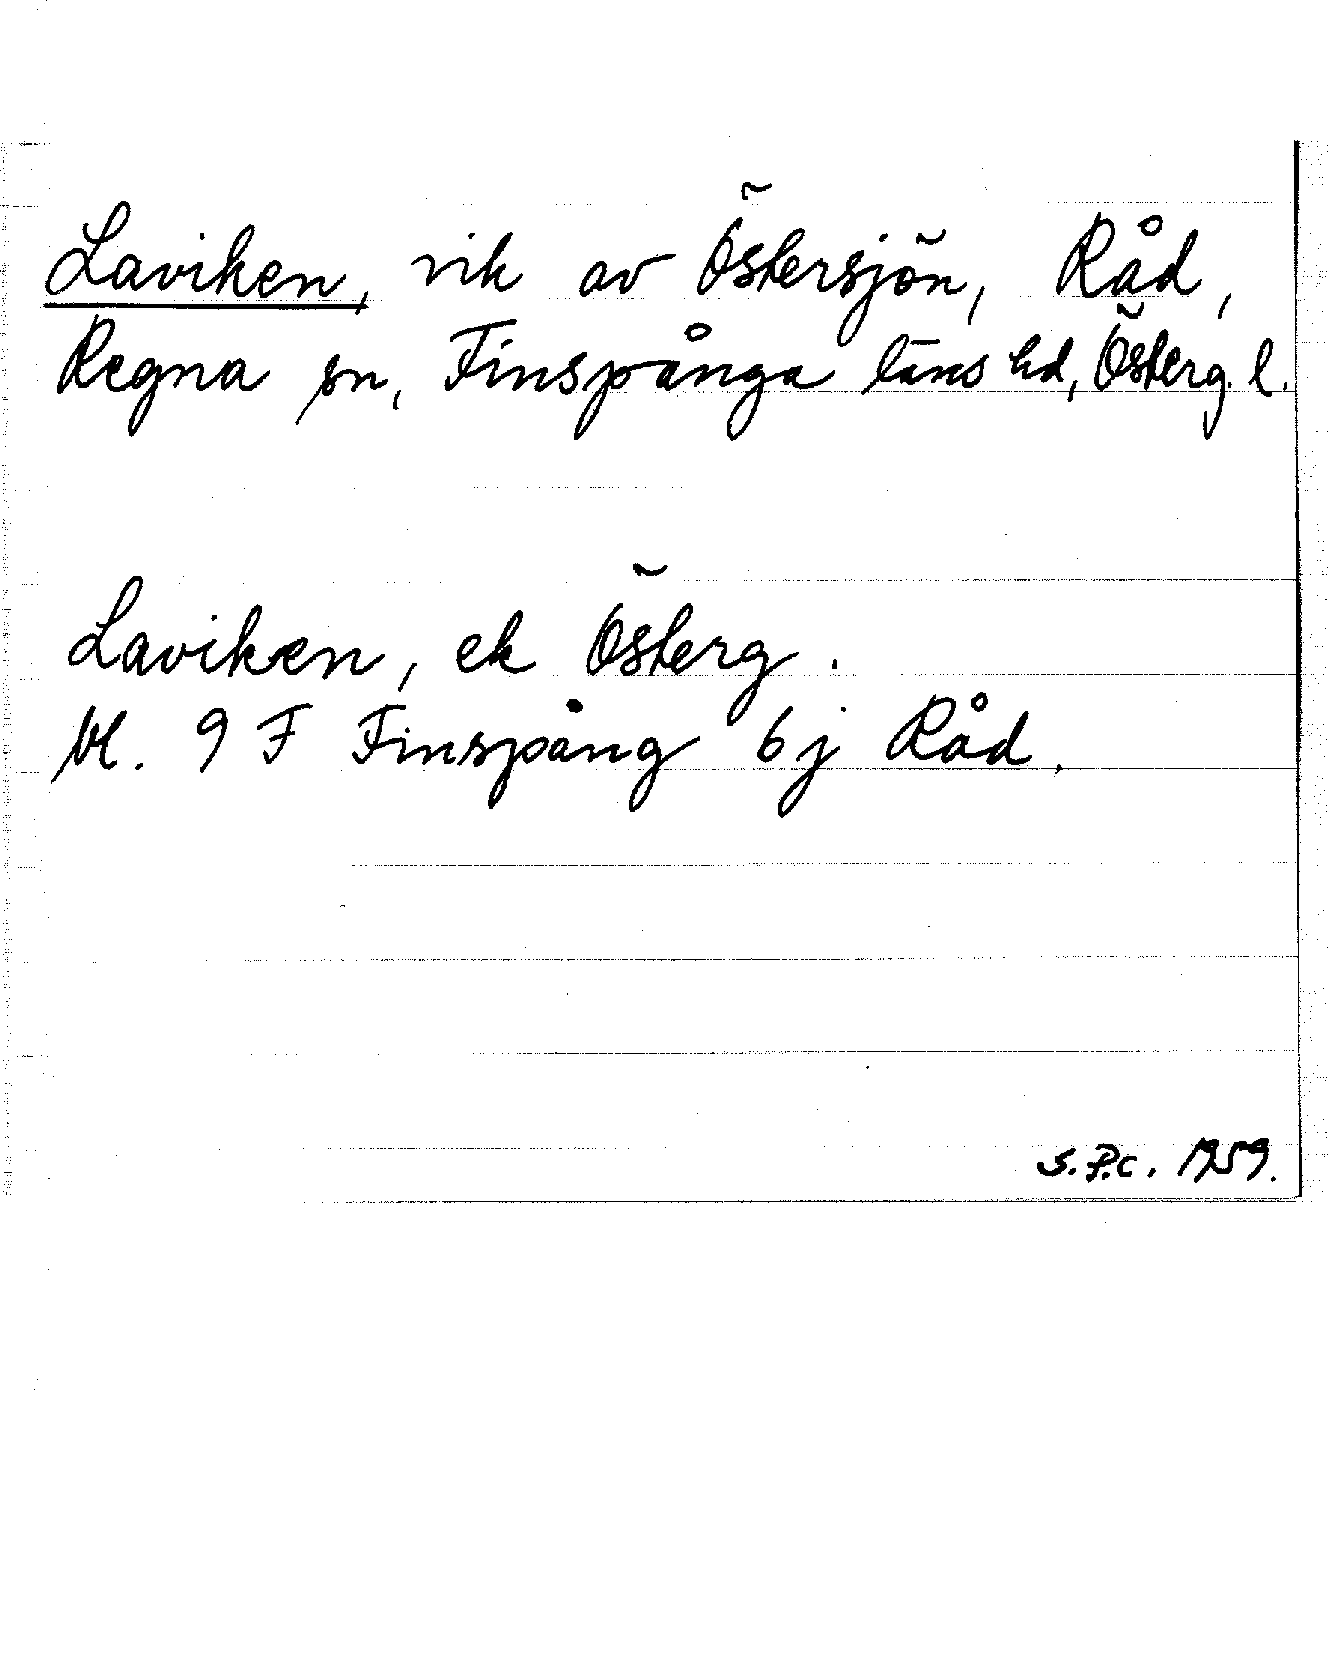 Laviken, vik av Östersjön, Råd,
Regna sn, Finspånga läns hd, Österg. l.
Laviken, ek Österg.
bl. 9 F Finspång 6 j Råd.
S.P.C. 1959.